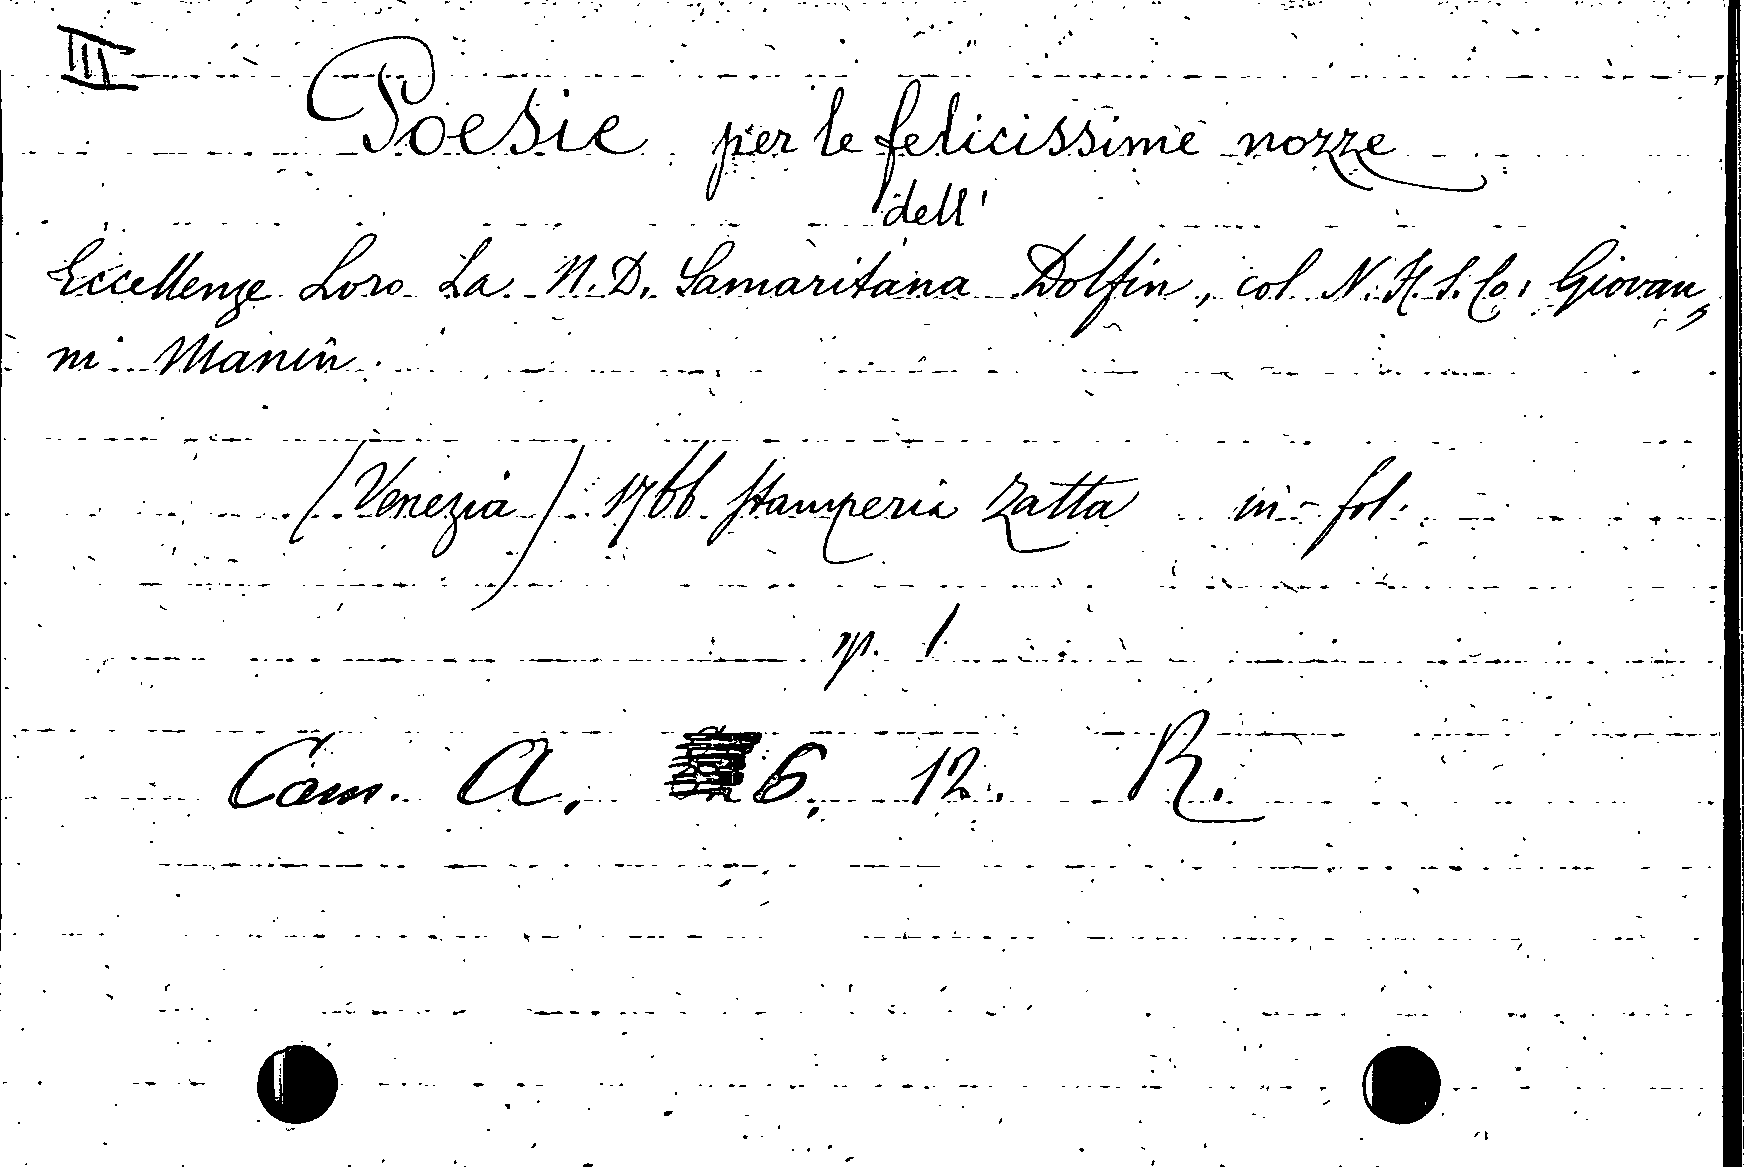 III
Poesie per le felicissime nozze
dell'
Eccellenze Loro La N.D. Samaritana Dolfin, col N.H.S.Co: Giovan,
ni Manin
(Venezia) 1766 Stamperia Zatta in-fol.
p. 1
Cam. A. 6. 12. R.